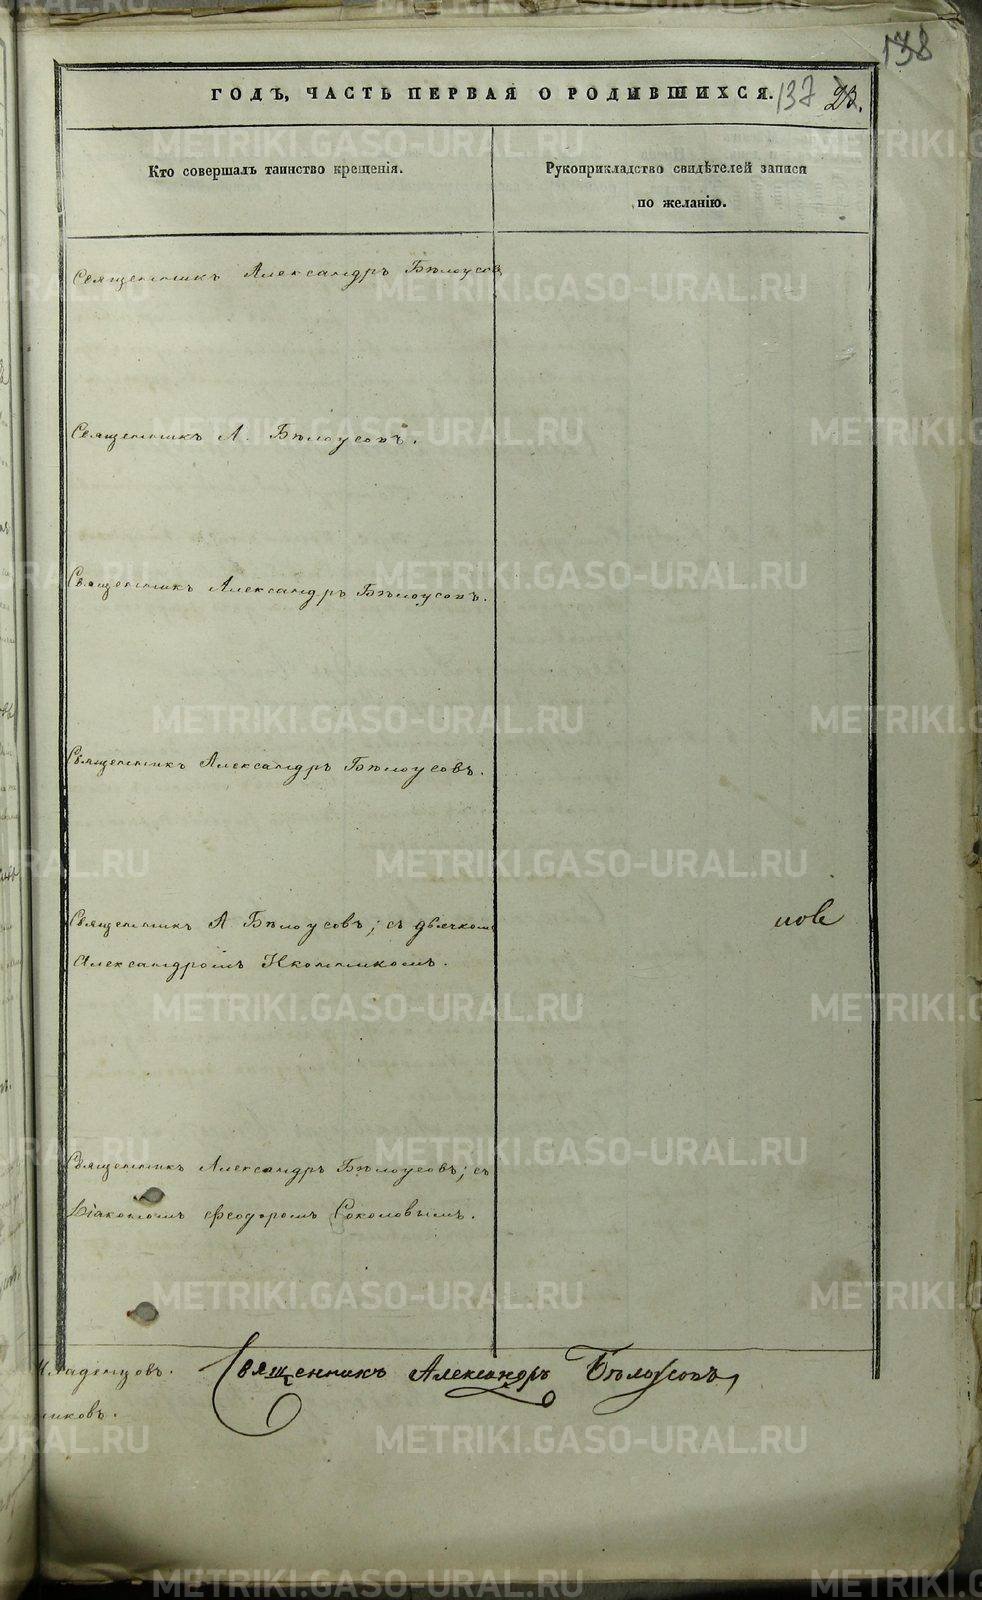 138
ГОДЪ, ЧАСТЬ ПЕРВАЯ О РОДИВШИХСЯ.
137
Кто совершалъ таинство крещенія.
Рукоприкладство свидѣтелей записи
по желанію.
Священникъ Александръ Бѣлоусовъ
Священникъ А. Бѣлоусовъ.
Священникъ Александръ Бѣлоусовъ.
Священникъ Александръ Бѣлоусовъ.
Священникъ А Бѣлоусовъ; съ дьячкомъ
Александромъ Иконникомъ.
Священникъ Александръ Бѣлоусовъ; съ
Діакономъ Ѳеодоромъ Соколовымъ.
Священникъ Александръ Бѣлоусовъ
METRIKI.GASO-URAL.RU